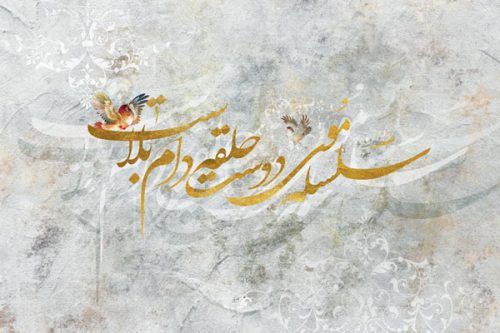 سلسله موی دوست حلقه دام بلاست